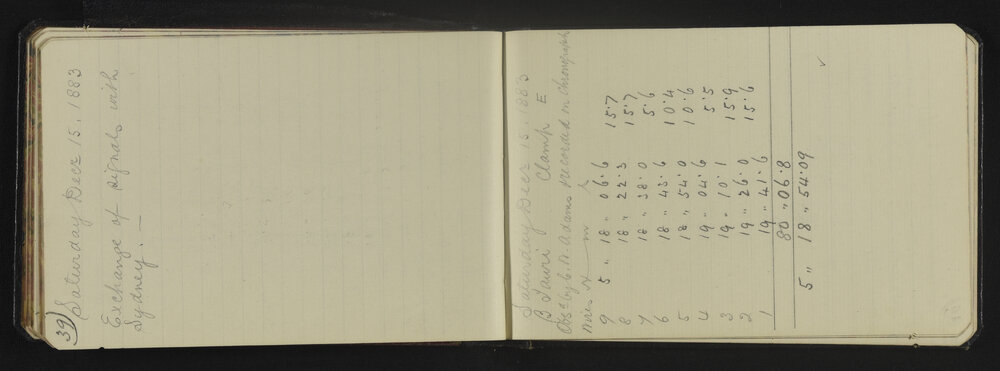 39
Saturday Decr 15. 1883
Exchange of signals with
Sydney. —
Saturday Decr 15. 1883
β Tauri Clamp E
Obsd by C. A. Adams recorded on Chronograph
Wires H m s
9 5 " 18 " 06.6 15.7
8 18 " 22.3 15.7
7 18 " 38.0 5.6
6 18 " 43.6 10.4
5 18 " 54.0 10.6
4 19 " 04.6 5.5
3 19 " 10.1 15.9
2 19 " 26.0 15.6
1 19 " 41.6
80 " 06.8
5 " 18 " 54.09